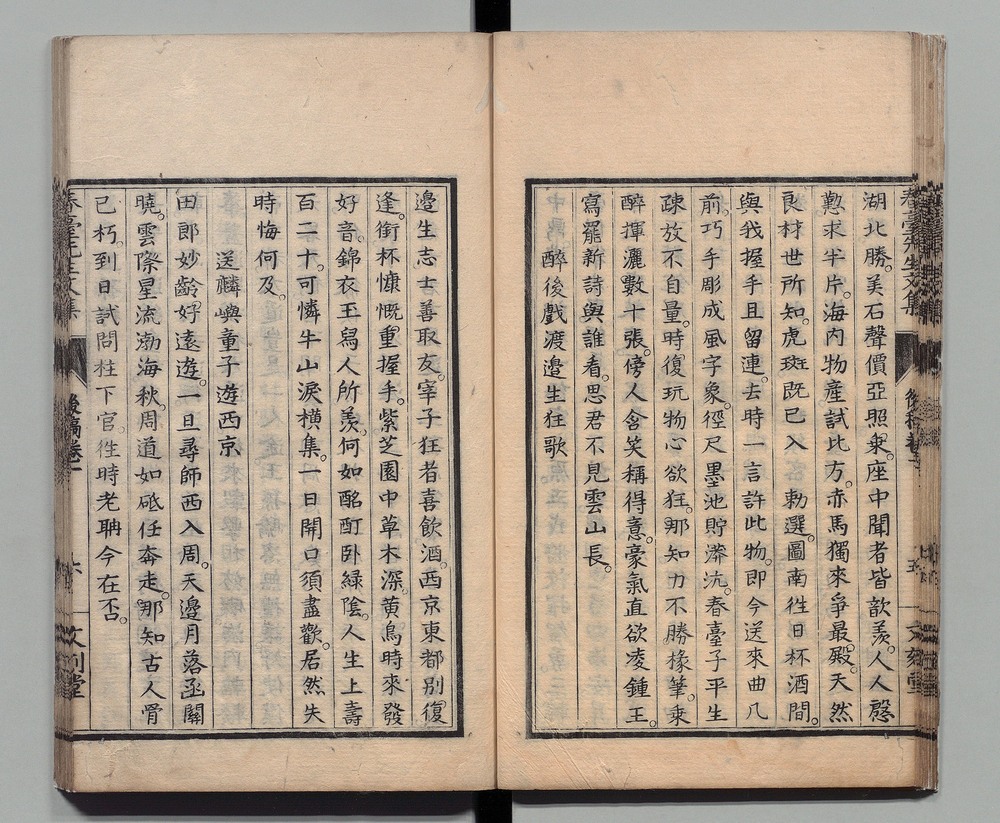 湖北勝。美石聲價亞照乘。座中聞者皆歆羨。人人慇
懃求半片。海内物產試比方。赤馬獨來爭最殿。天然
良材世所知。虎斑既已入勅選。圖南徃日杯酒間。
與我握手且留連。去時一言許此物。即今送來曲几
前。巧手彫成風字象。徑尺墨池貯漭沆。春臺子平生
疎放不自量。時復玩物心欲狂。那知力不勝椽筆。乘
醉揮灑數十張。傍人含笑稱得意。豪氣直欲凌鍾王。
寫罷新詩與誰看。思君不見雲山長。
醉後戲渡邉生狂歌
邉生志士善取友。宰子狂者喜飲酒。西京東都別復
逢。銜杯慷慨重握手。紫芝園中草木深。黄鳥時來發
好音。錦衣玉舄人所羨。何如酩酊卧緑陰。人生上壽
百二十。可憐牛山淚横集。一日開口須盡歡。居然失
時悔何及。
送麟嶼童子遊西京
田郎妙齡好遠遊。一旦尋師西入周。天邉月落函關
曉。雲際星流渤海秋。周道如砥任奔走。那知古人骨
已朽。到日試問柱下官。徃時老聃今在否。
春臺先生文集
後稿卷一
六